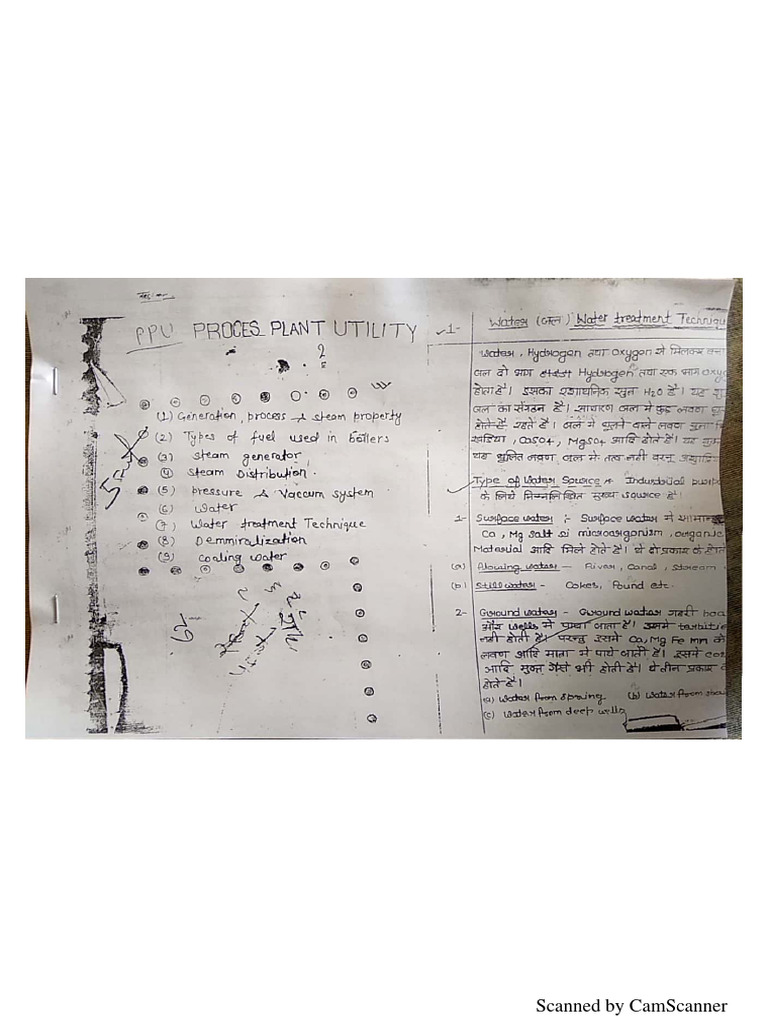 PPU PROCES PLANT UTILITY
(1) Generation, process & steam property
(2) Types of fuel used in boilers
(3) steam generator
(4) Steam Distribution
(5) pressure & Vaccum system
(6) Water
(7) Water treatment Technique
(8) Demmiralization
(9) Cooling water
1- Water (जल) Water treatment Techniqu
Water, Hydrogen तथा Oxygen से मिलकर बना
जल दो भाग Hydrogen तथा एक भाग oxyg
होता है। इसका रशायनिक सुत्र H2O है। यह शु
जल का संगठन है। साधारण जल मे कुछ लवण घुले
होते हैं रहते है। जल मे घुलने वाले लवण
खडिया, CaSO4, MgSO4 आदि होते है। यह
यह घुलित लवण जल मे तत्व नही वरन् अशुद्धि
Type of Water Source :- Indurstrial purp
के लिये निम्नलिखित मुख्य source है।
1- Surface water :- Surface water मे सामान्य
Ca, Mg Salt si microorganism, organic
Material आदि मिले होते है। ये दो प्रकार के होते
(a) Flowing water - River, Canal, Stream
(b) Still water - Cokes, Pound etc.
2- Ground water - Ground water गहरी boa
और wells मे प्राप्त जाता है। इनमे turbitie
नही होती है। परन्तु इसमे Ca, Mg Fe mn के
लवण आदि मात्रा मे पाये जाती है। इसमे co2
आदि मुक्त गैसे भी होती है। ये तीन प्रकार
होते है।
(a) Water from spring (b) Water from sha
(c) Water from deep wells
Scanned by CamScanner